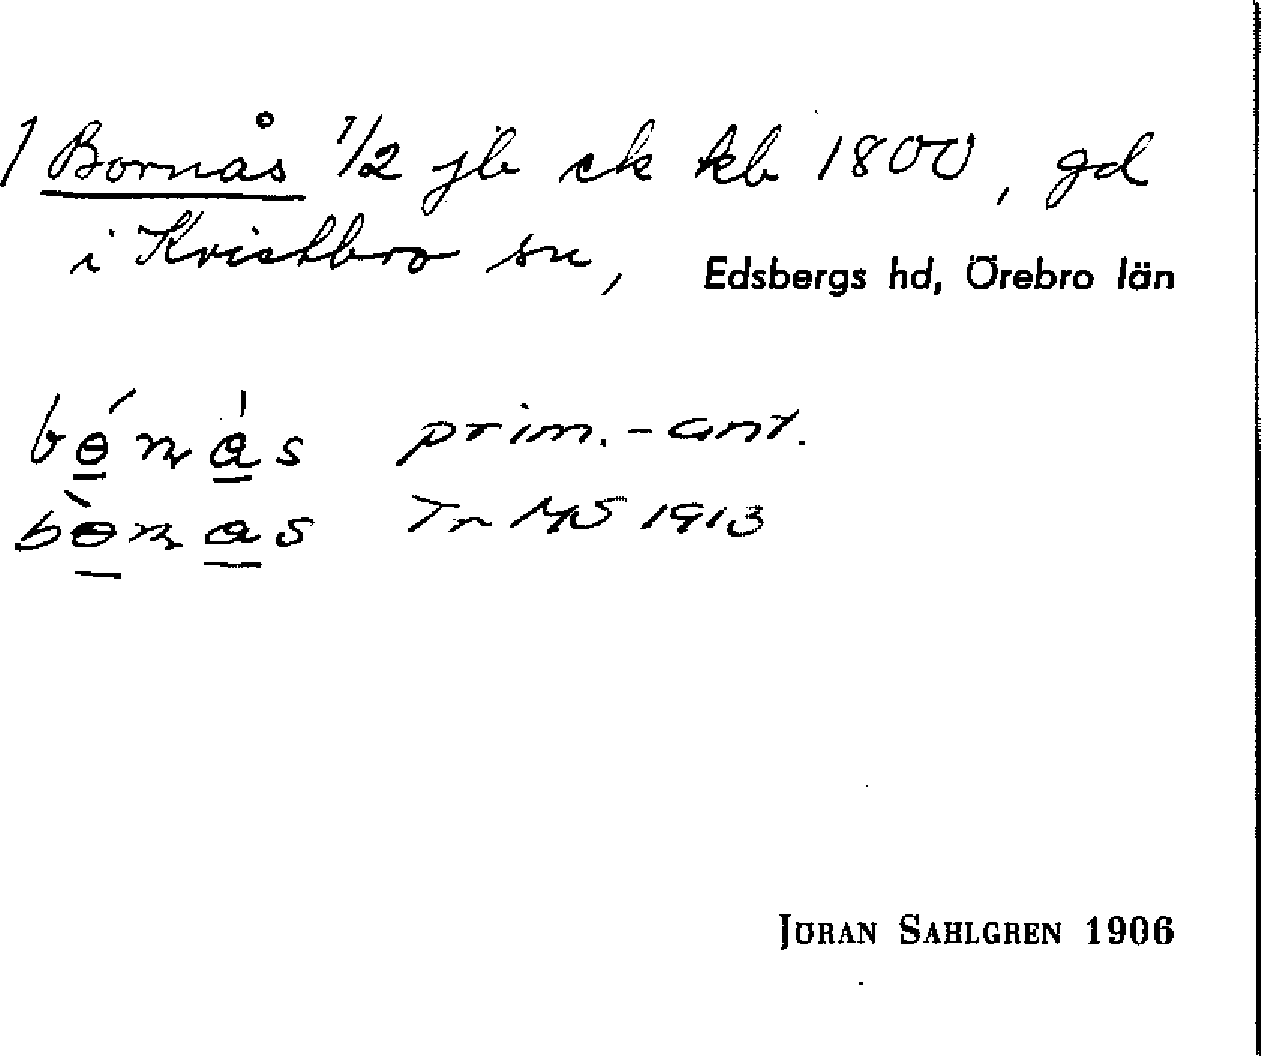 1 Bornås 1/2 jb ek kb 1800, gd
i Kvistbro sn, Edsbergs hd, Örebro län
prim.-ant.
Tn MS 1913
JÖRAN SAHLGREN 1906